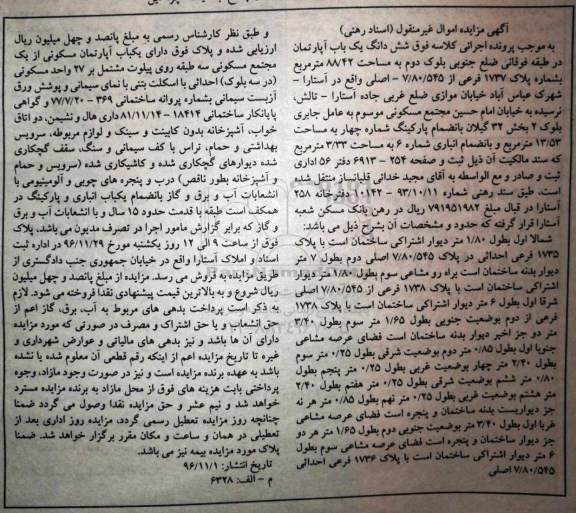 آگهی مزایده اموال غیرمنقول (اسناد رهنی)
به موجب پرونده اجرائی کلاسه فوق شش دانگ یک باب آپارتمان
در طبقه فوقانی ضلع جنوبی بلوک دوم به مساحت ۸۸/۴۲ مترمربع
بشماره پلاک ۱۷۳۷ فرعی از ۷/۸۰/۵۴۵ - اصلی واقع در آستارا -
شهرک عباس آباد خیابان موازی ضلع غربی جاده آستارا - تالش،
نرسیده به خیابان امام حسین مجتمع مسکونی موسوم به عامل جابری
بلوک ۲ بخش ۳۲ گیلان بانضمام پارکینگ شماره چهار به مساحت
۱۳/۵۳ مترمربع و بانضمام انباری شماره ۶ به مساحت ۳/۳۳ مترمربع
که سند مالکیت آن ذیل ثبت و صفحه ۲۵۴ - ۶۹۱۳ دفتر ۵۶ اداری
ثبت و صادر و مع الواسطه به آقای مجید خدائی قلیانساز منتقل شده
است. طبق سند رهنی شماره ۹۳/۱۰/۱۱ - ۱۰۴۲ دفترخانه ۲۵۸
آستارا در قبال مبلغ ۷۹۱۹۵۱۹۸۲ ریال در رهن بانک مسکن شعبه
آستارا قرار گرفته که حدود و مشخصات آن بشرح ذیل می باشد:
شمالا اول بطول ۱/۸۰ متر دیوار اشتراکی ساختمان است با پلاک
۱۷۳۵ فرعی احداثی در پلاک ۷/۸۰/۵۴۵ اصلی دوم بطول ۷ متر
دیوار بدنه ساختمان است براه رو مشاعی سوم بطول ۱/۸۰ متر دیوار
اشتراکی ساختمان است با پلاک ۱۷۳۸ فرعی از ۷/۸۰/۵۴۵ اصلی
شرقا اول بطول ۶ متر دیوار اشتراکی ساختمان است با پلاک ۱۷۳۸
فرعی از دوم بوضعیت جنوبی بطول ۱/۶۵ متر سوم بطول ۳/۴۰
متر دو جز اخیر دیوار بدنه ساختمان است فضای عرصه مشاعی
جنوبا اول بطول ۰/۸۵ متر دوم بوضعیت شرقی بطول ۰/۲۵ متر سوم
بطول ۲/۴۰ متر چهار بوضعیت غربی بطول ۰/۲۵ متر پنجم بطول
۰/۸۰ متر ششم بوضعیت شرقی بطول ۰/۲۵ متر هفتم بطول ۲/۴۰
متر هشتم بوضعیت غربی بطول ۰/۲۵ متر نهم بطول ۰/۸۵ متر هر نه
جز دیواریست بدنه ساختمان و پنجره است فضای عرصه مشاعی
غربا اول بطول ۳/۴۰ متر بوضعیت جنوبی دوم بطول ۱/۶۵ متر هر دو
جز دیوار ساختمان و پنجره است فضای عرصه مشاعی سوم بطول
۶ متر دیوار اشتراکی ساختمان است با پلاک ۱۷۳۶ فرعی احداثی
۷/۸۰/۵۴۵ اصلی
و طبق نظر کارشناس رسمی به مبلغ پانصد و چهل میلیون ریال
ارزیابی شده و پلاک فوق دارای یکباب آپارتمان مسکونی از یک
مجتمع مسکونی سه طبقه روی پیلوت مشتمل بر ۲۷ واحد مسکونی
(در سه بلوک) احداثی با اسکلت بتنی با نمای سیمانی و پوشش ورق
آزبست سیمانی بشماره پروانه ساختمانی ۳۶۹ - ۷۷/۷/۲۰ و گواهی
پایانکار ساختمانی ۱۸۴۱۴ - ۸۱/۱۱/۱۴ داری هال و نشیمن، دو اتاق
خواب، آشپزخانه بدون کابینت و سینک و لوازم مربوطه، سرویس
بهداشتی و حمام، تراس با کف سیمانی و سنگ، سقف گچکاری
شده دیوارهای گچکاری شده و کاشیکاری شده (سرویس و حمام
و آشپزخانه بطور ناقص) درب و پنجره های چوبی و آلومینیومی با
انشعابات آب و برق و گاز بانضمام یکباب انباری و پارکینگ در
همکف است طبقه با قدمت حدود ۱۵ سال و با انشعابات آب و برق
و گاز که برابر گزارش مامور اجرا در تصرف مدیون می باشد، پلاک
فوق از ساعت ۹ الی ۱۲ روز یکشنبه مورخ ۹۶/۱۱/۲۹ در اداره ثبت
اسناد و املاک آستارا واقع در خیابان جمهوری جنب دادگستری از
طریق مزایده به فروش می رسد. مزایده از مبلغ پانصد و چهل میلیون
ریال شروع و به بالاترین قیمت پیشنهادی نقدا فروخته می شود. لازم
به ذکر است پرداخت بدهی های مربوط به آب، برق، گاز اعم از
حق انشعاب و یا حق اشتراک و مصرف در صورتی که مورد مزایده
دارای آن ها باشد و نیز بدهی های مالیاتی و عوارض شهرداری و
غیره تا تاریخ مزایده اعم از اینکه رقم قطعی آن معلوم شده یا نشده
باشد به عهده برنده مزایده است و نیز در صورت وجود مازاد، وجوه
پرداختی بابت هزینه های فوق از محل مازاد به برنده مزایده مسترد
خواهد شد و نیم عشر و حق مزایده نقدا وصول می گردد ضمنا
چنانچه روز مزایده تعطیل رسمی گردد، مزایده روز اداری بعد از
تعطیلی در همان و ساعت و مکان مقرر برگزار خواهد شد. ضمنا
پلاک مورد مزایده بیمه نیز می باشد.
تاریخ انتشار: ۹۶/۱۱/۱
م - الف: ۶۳۲۸